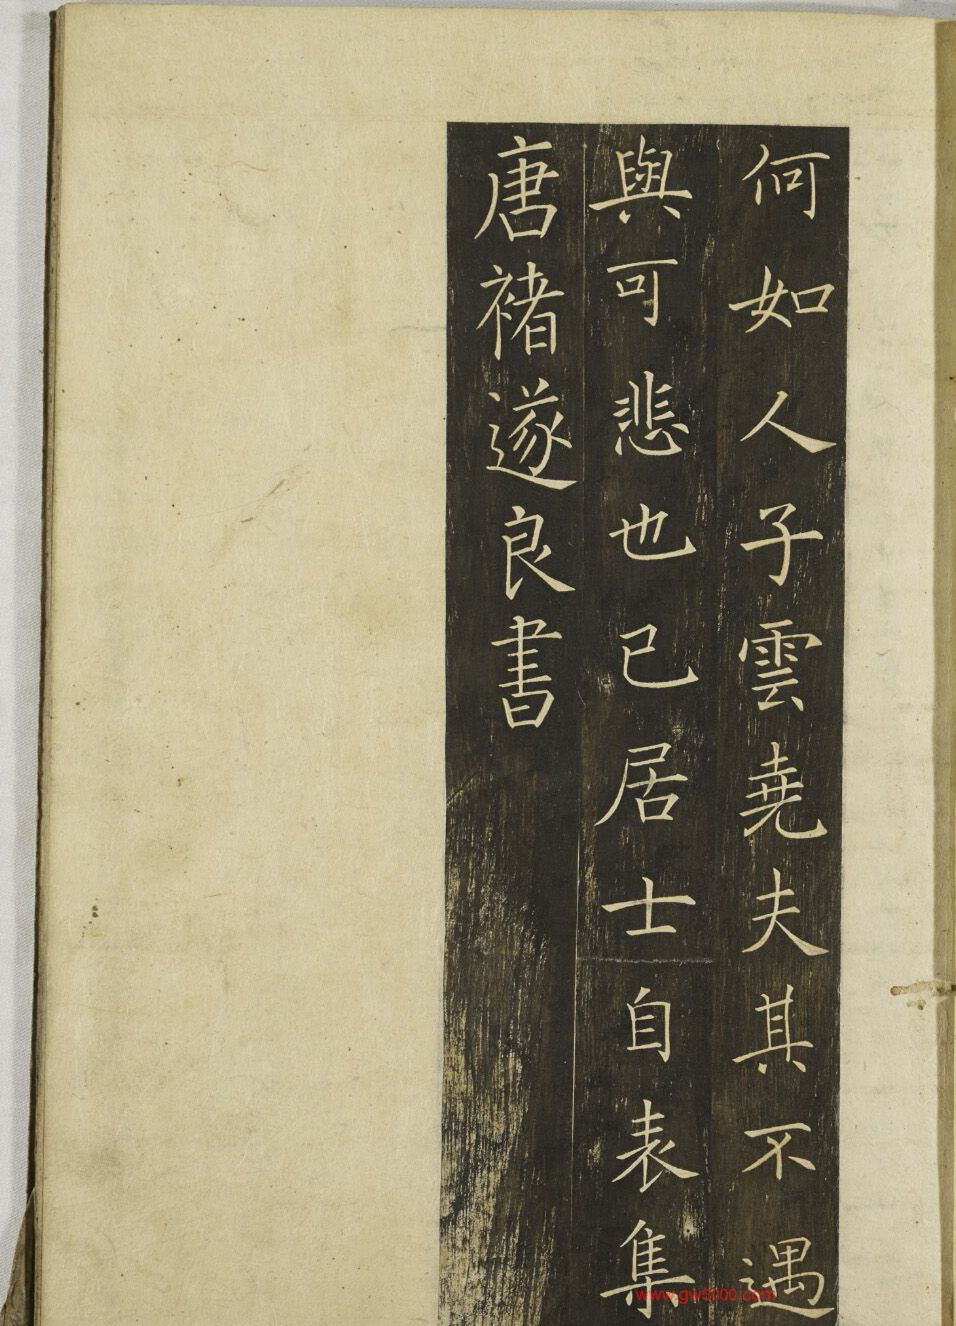 何如人子雲堯夫其不遇
與可悲也已居士自表集
唐褚遂良書
www.gw5000.com